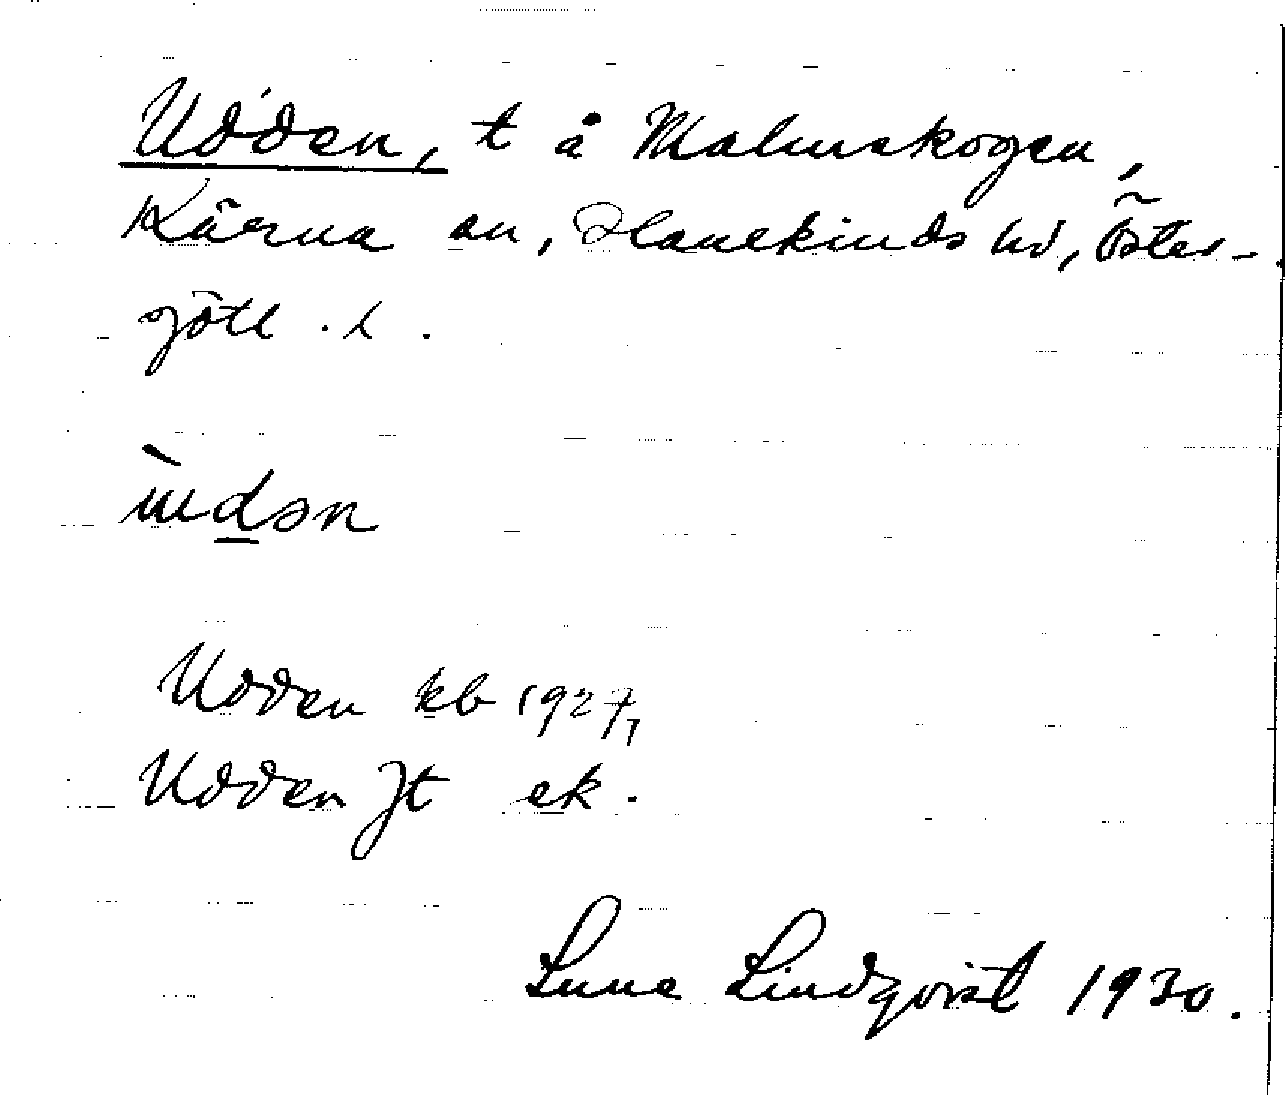 Udden, t å Malmskogen,
Kärna sn, Hanekinds hd, Öster-
götl. l.
ùdən
Udden kb 1927,
Udden Jt ek.
Sune Lindqvist 1930.